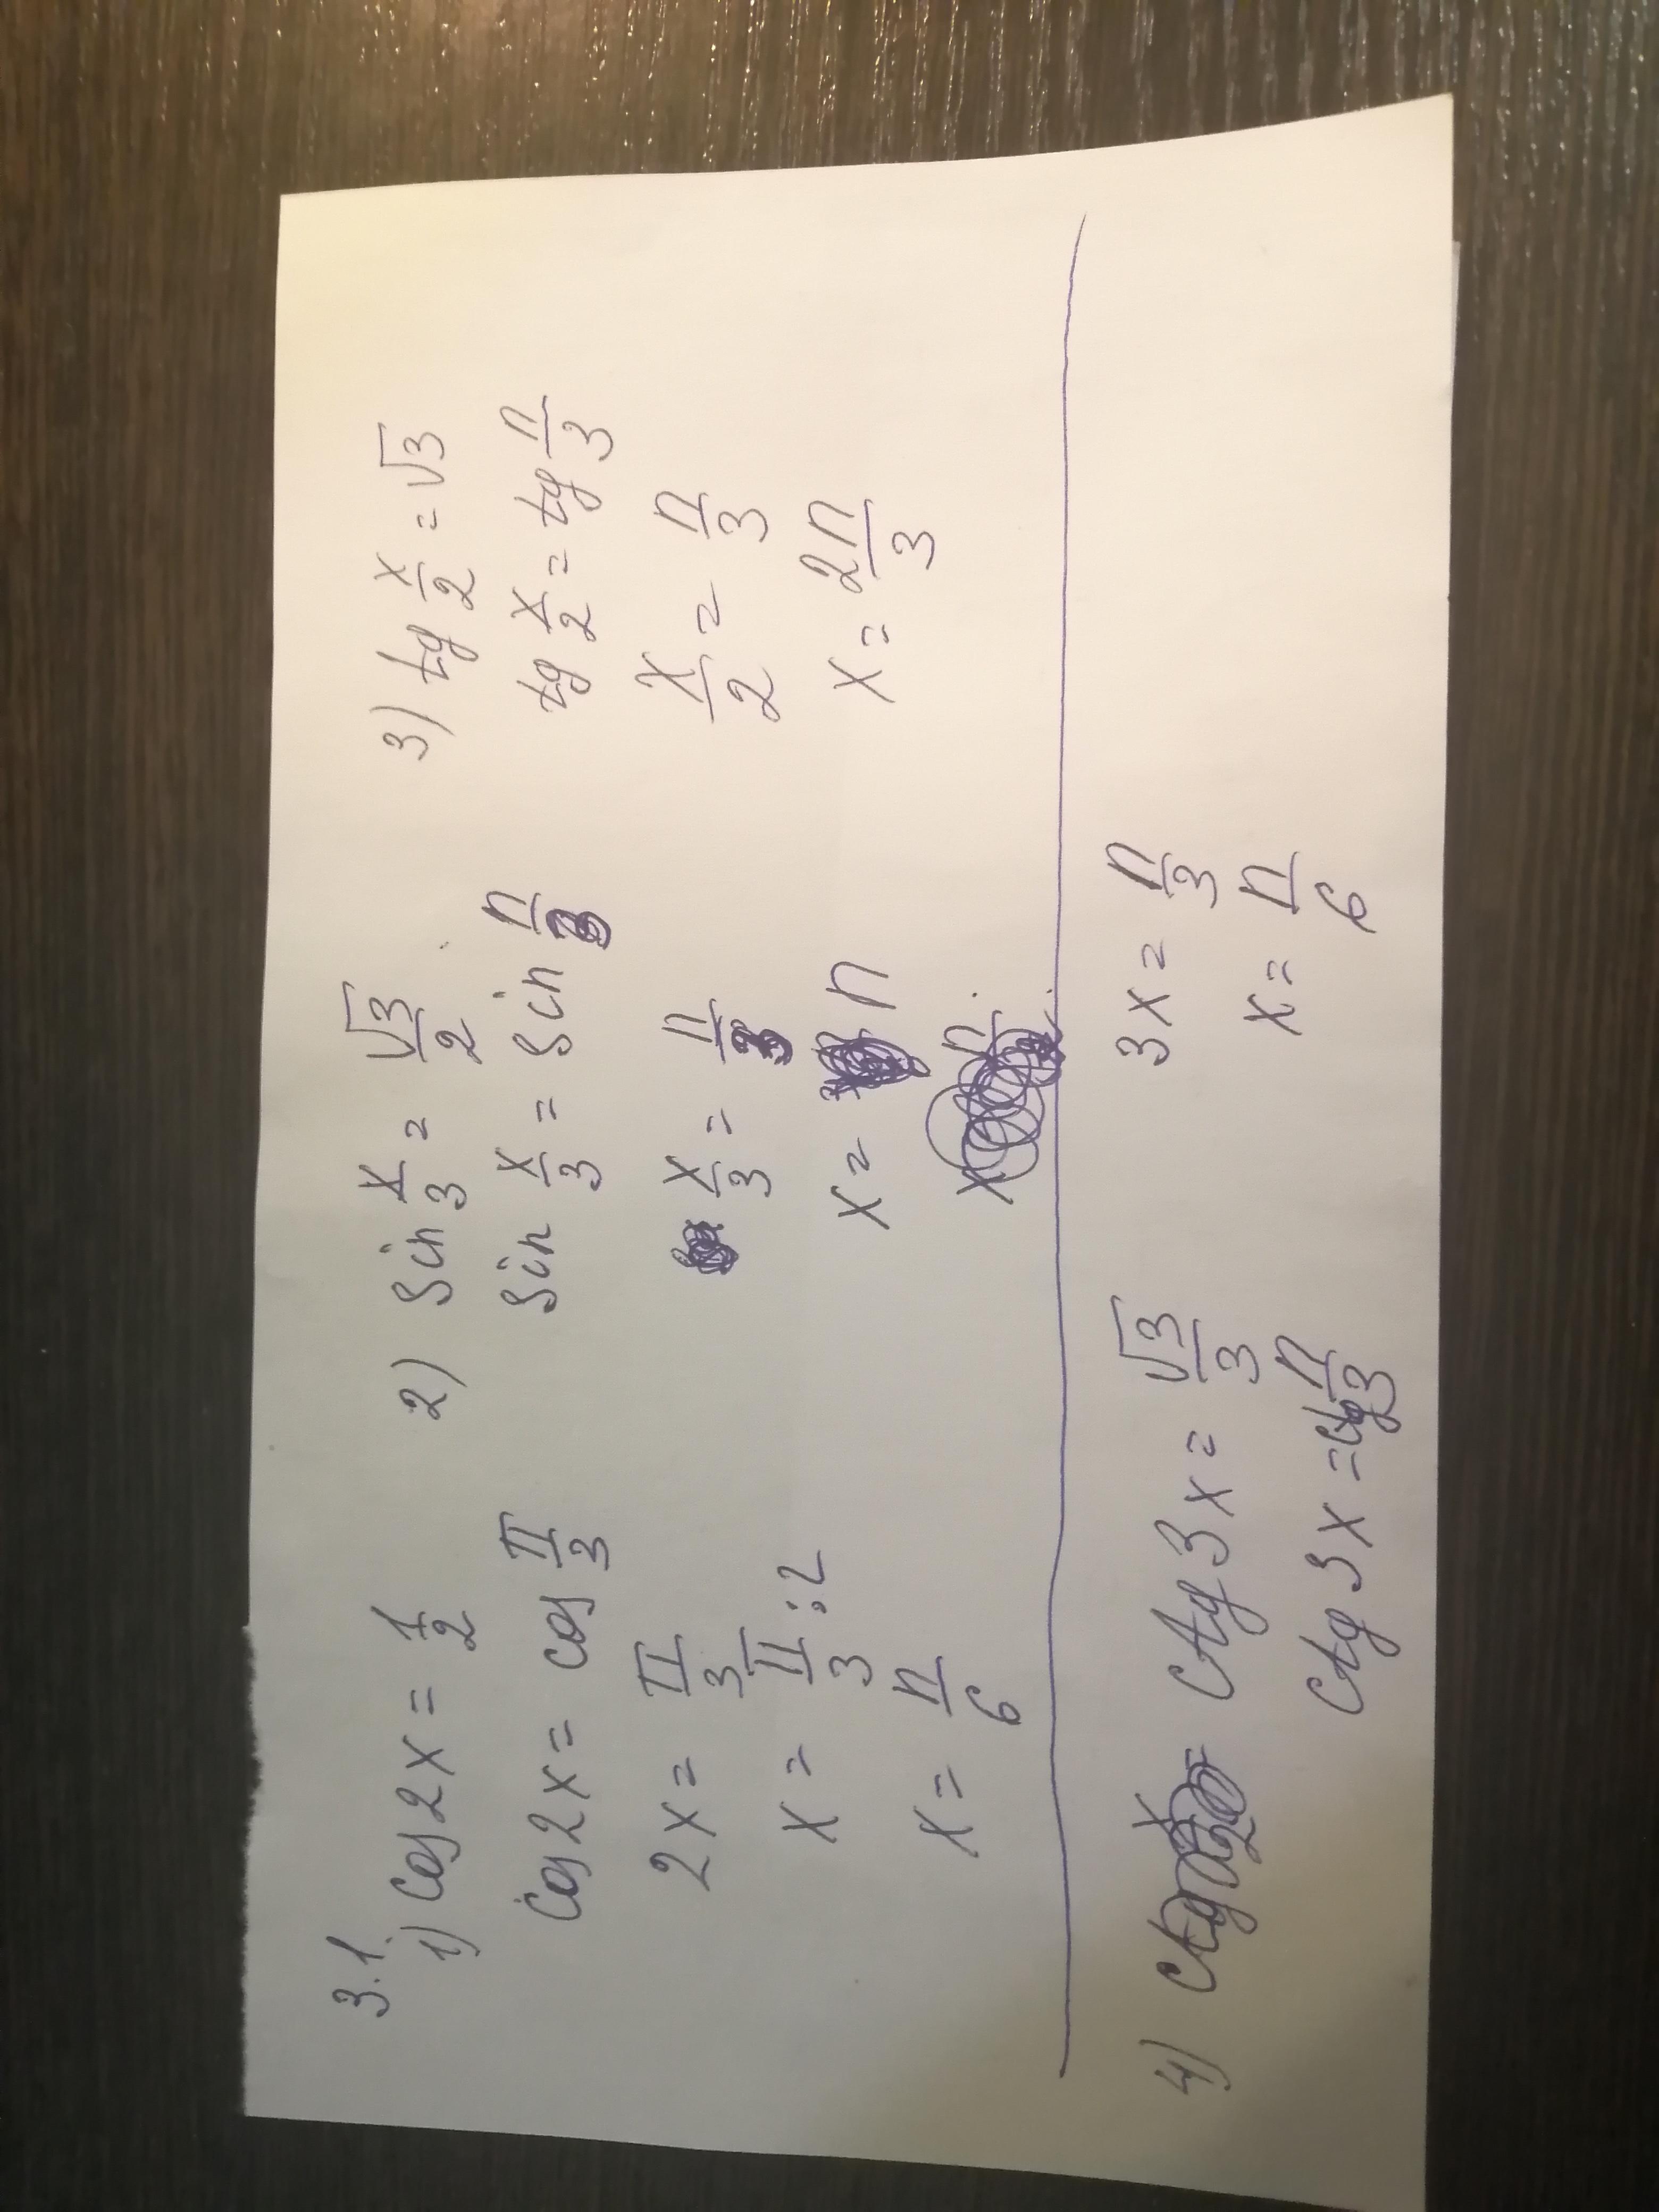 3.1.
1) cos2x = 1/2
cos2x = cos π/3
2x = π/3
x = π/3 : 2
x = π/6
2) sin x/3 = √3/2
sin x/3 = sin π/3
x/3 = π/3
x = π
3) tg x/2 = √3
tg x/2 = tg π/3
x/2 = π/3
x = 2π/3
4) ctg3x = √3/3
ctg3x = ctg π/3
3x = π/3
x = π/6